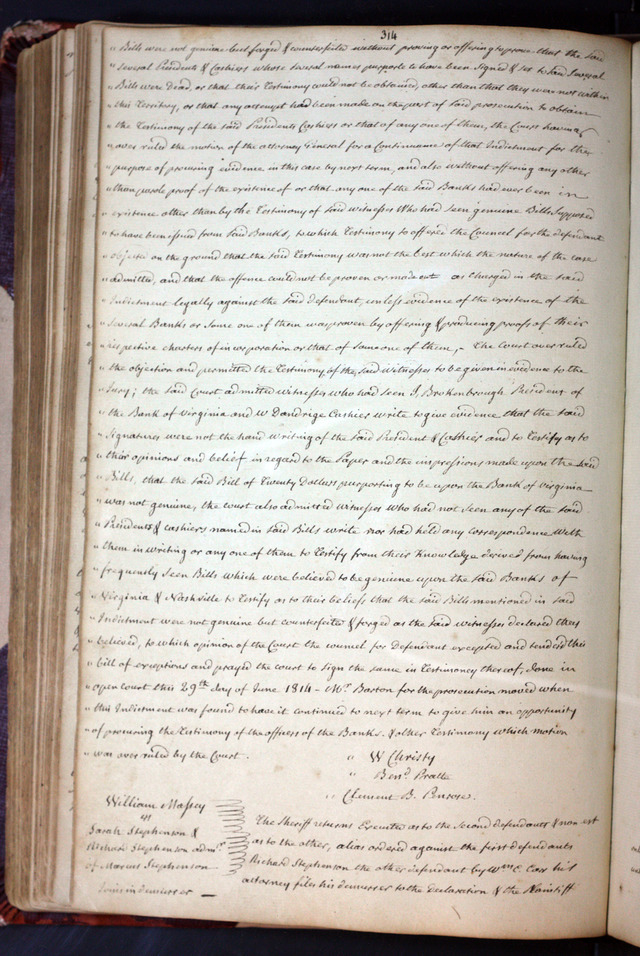 314
" Bills were not genuine but forged & counterfeited without proving or offering to prove that the said
" Several Presidents & Cashiers whose several names purports to have been Signed & set to said Several
" Bills were Dead, or that their Testimony could not be obtained, other than that they were not within
" this Territory, or that any attempt had been made on the part of said prosecution to obtain
" the Testimony of the said Presidents Cashiers or that of any one of them, the Court having
" over ruled the motion of the attorney General for a Continuance of that Indictment for the
" purpose of procuring evidence in this case by next term, and also without offering any other
" than parole proof of the existence of or that any one of the said Banks had ever been in
" existence other than by the Testimony of said witnesses Who had seen genuine Bills supposed
" to have been issued from said Banks, to which Testimony so offered the Council for the defendant
" objected on the ground that the said Testimony was not the best which the nature of the case
" admitted, and that the offence could not be proven or made out as Charged in the said
" Indictment legally against the said defendant, unless evidence of the existence of the
" Several Banks or Some one of them was proven by offering & producing proofs of their
" respective charters of incorporation or that of some one of them, The Court over ruled
" the objection and permitted the Testimony of the said witnesses to be given in evidence to the
" Jury; the said Court admitted witnesses who had seen J. Brokenbrough President of
" the Bank of Virginia and W Dandrige Cashier write to give evidence that the said
" Signatures were not the hand writing of the said President & Cashier and to Testify as to
" their opinions and belief in regard to the Paper and the impressions made upon the said
" Bills, that the said Bill of Twenty Dollars purporting to be upon the Bank of Virginia
" was not genuine, the court also admitted witnesses who had not seen any of the said
" Presidents & cashiers named in said Bills write nor had held any correspondence With
" them in writing or any one of them to Testify from their Knowledge derived from having
" frequently Seen Bills which were believed to be genuine upon the said Banks of
" Virginia & Nashville to Testify as to their beliefs that the said Bills mentioned in said
" Indictment were not genuine but counterfeited & forged as the said witnesses declared they
" believed, to which opinion of the Court the counsel for Defendant excepted and tendered this
" bill of exceptions and prayed the court to sign the same in Testimoney thereof, done in
" open court this 29th day of June 1814 - Mr. Barton for the prosecution moved when
" this Indictment was found to have it continued to next term to give him an opportunity
" of procuring the Testimony of the officers of the Banks & other Testimony which motion
" was over ruled by the Court.
" W Christy
" Bend. Pratte
" Clement B. Penrose.
William Massey
vs
Sarah Stephenson &
Richard Stephenson admrs.
of Marcus Stephenson
Joins in demurrer
The Sheriff returns Executed as to the Second defendants & non est
as to the other, alias ordered against the first defendants
Richard Stephenson the other defendant by Wm. C. Carr his
attorney files his demurrer to the declaration & the Plaintiff